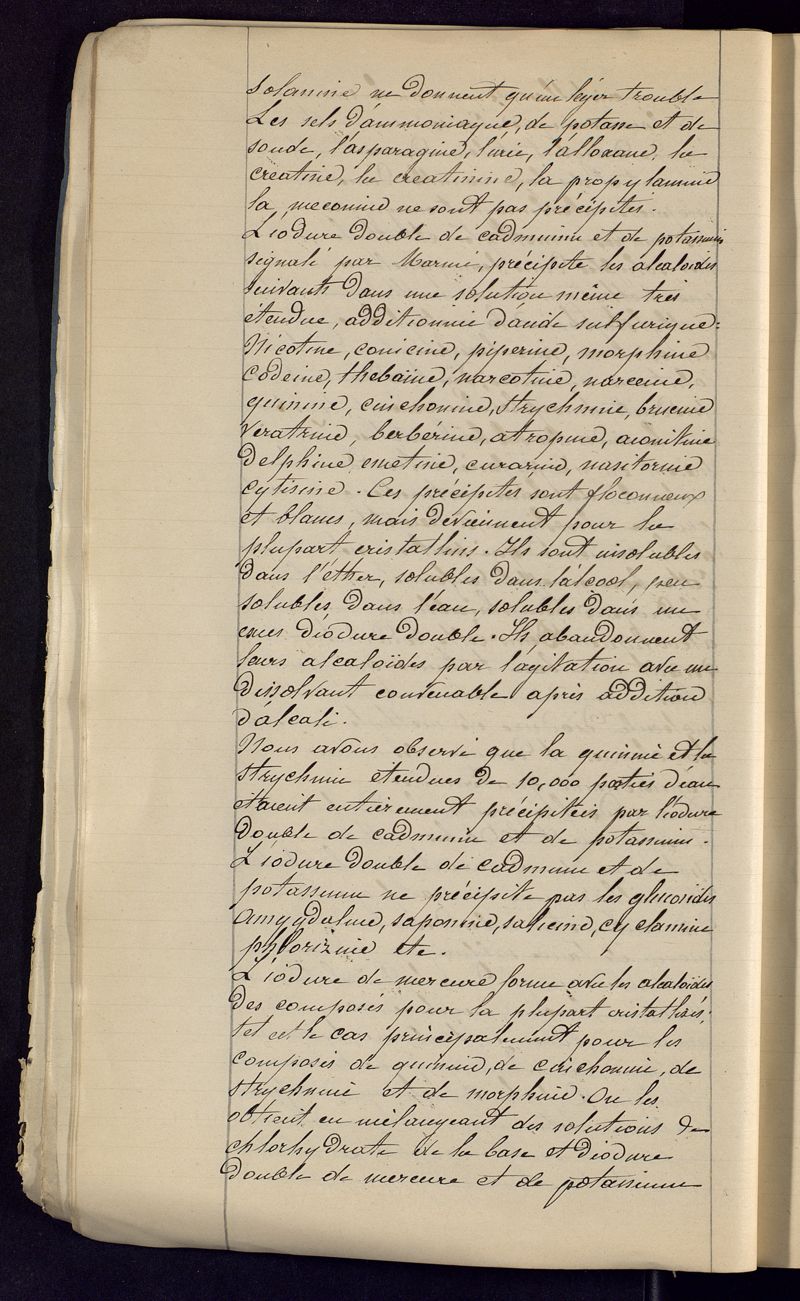 Solanine ne donnent qu'un léger trouble
Les sels d'ammoniaque, de potasse et de
soude, l'asparagine, l'urée, l'alloxane, la
créatine, la creatinine, la propylamine
la meconine ne sont pas précipités.
L'iodure double de cadmium et de potassium
signalé par Marmé, précipite les alcaloïdes
suivants dans une solution même très
étendue, additionnée d'acide sulfurique:
Nicotine, conicine, piperine, morphine
Codeine, thebaïne, narcotine, narceine,
quinine, cinchonine, strychnine, brucine
Veratrine, berbérine, atropine, aconitine
Delphine emetine, curarine,
Cytisine. Ces précipités sont floconneux
et blancs, mais deviennent pour la
plupart cristallins. Ils sont insolubles
dans l'éther, solubles dans l'alcool, peu
solubles, dans l'eau, solubles dans un
exces d'iodure double. Ils abandonnent
leurs alcaloïdes par l'agitation avec un
dissolvant convenable après addition
d'alcali.
Nous avons observé que la quinine et la
strychnine étendues de 10,000 parties d'eau
étaient entièrement précipitées par l'iodure
double de cadmium et de potassium.
L'iodure double de cadmium et de
potassium ne précipite pas les glucosides
Amygdaline, saponine, salicine, cyclamine
phlorizine etc.
L'iodure de mercure forme avec les alcaloïdes
des composés pour la plupart cristallisés;
tel est le cas principalement pour les
composés de quinine, de cinchonine, de
strychnine et de morphine. On les
obtient en mélangeant des solutions de
chlorhydrate de la base et d'iodure
double de mercure et de potassium